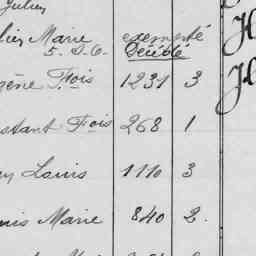 Julien
lien Marie exempté
5. S. O. Décédé
gène Fois 1231 3
stant Fois 268 1
Louis 1110 3
uis Marie 840 2.